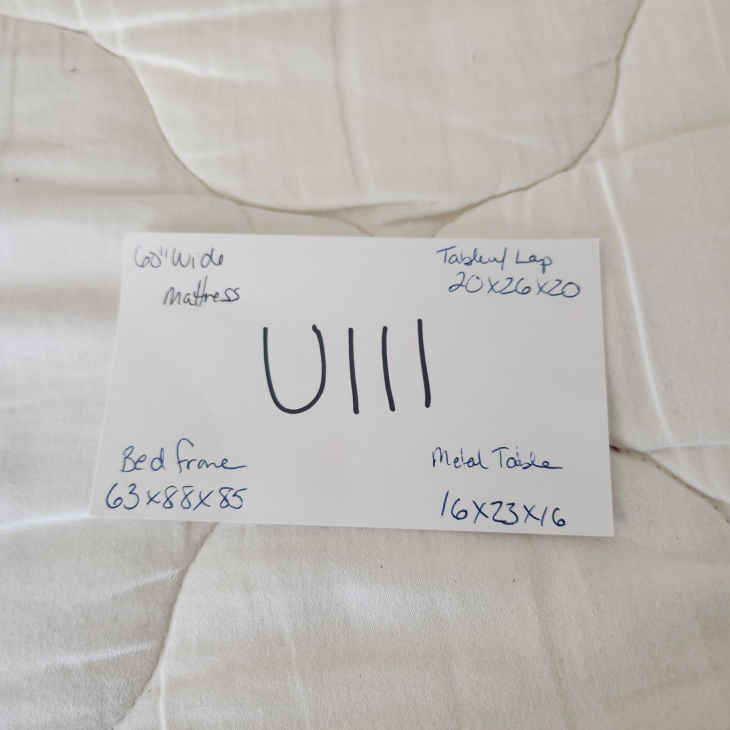 60" Wide
Mattress
Table w/ Lap
20x26x20
U111
Bed frame
63x88x85
Metal Table
16x23x16